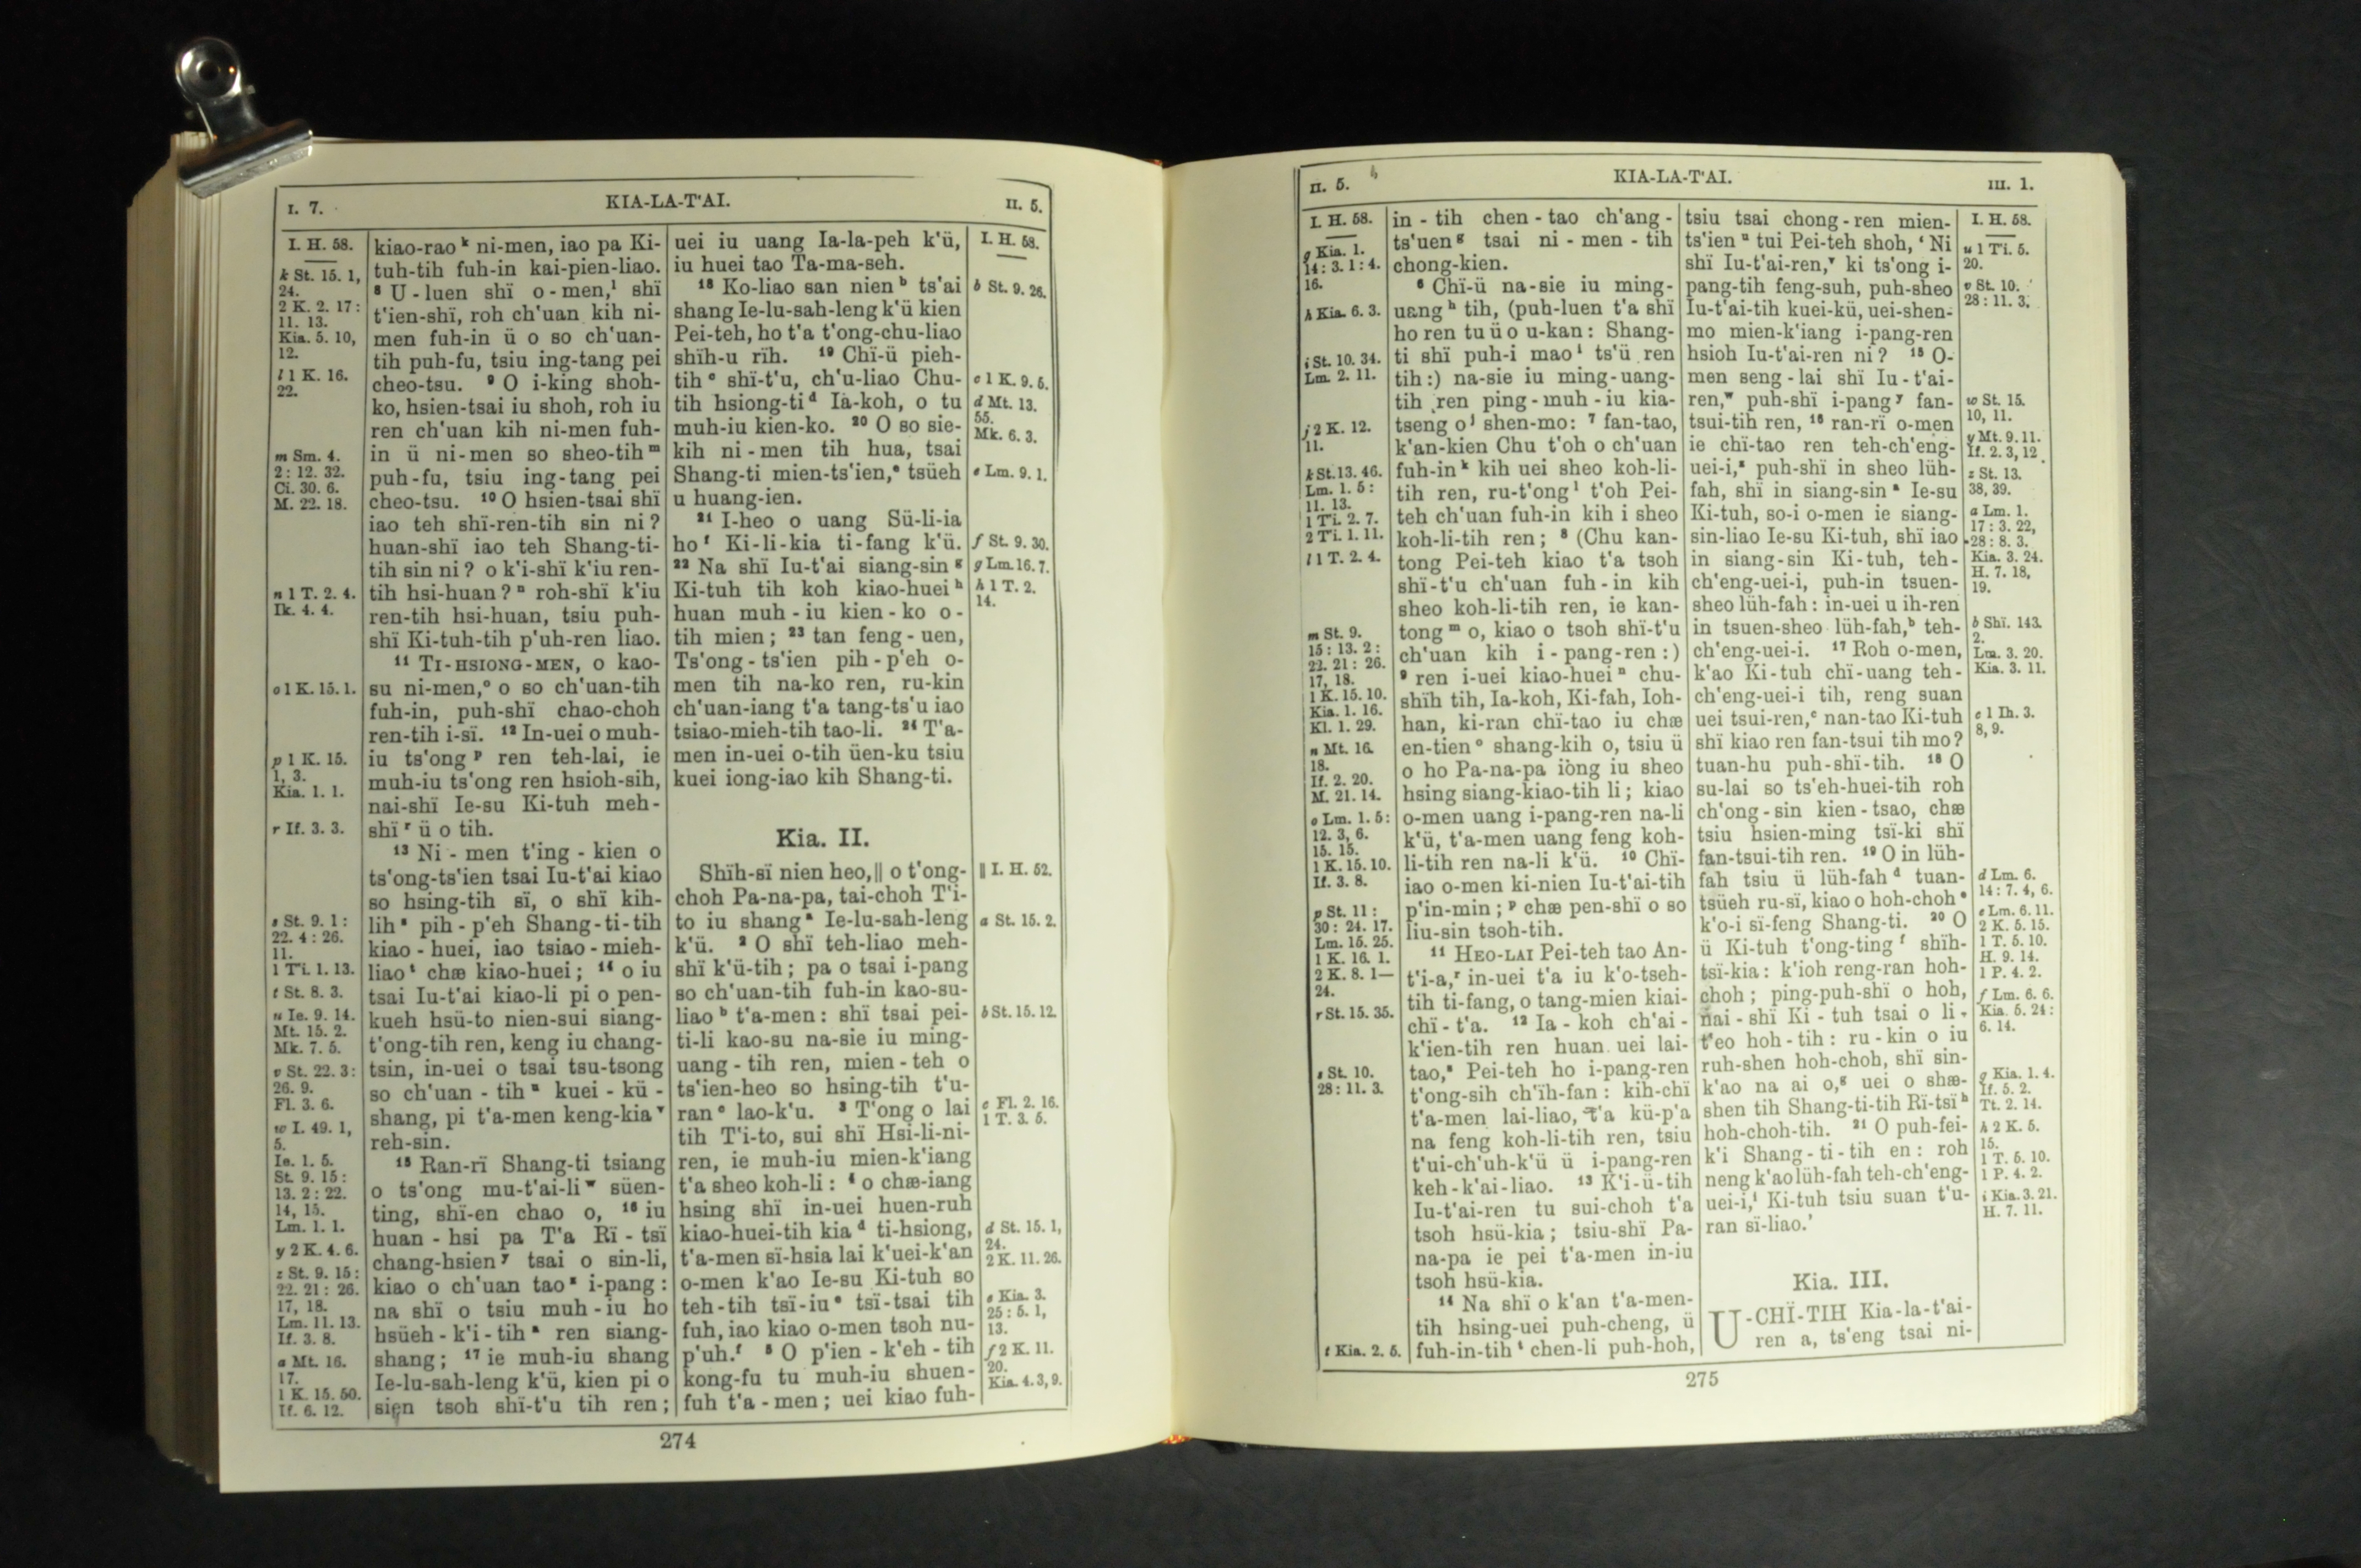 I. 7.
KIA-LA-T'AI.
II. 5.
I. H. 58.
k St. 15. 1,
24.
2 K. 2. 17:
11. 13.
Kia. 5. 10,
12.
l 1 K. 16.
22.
m Sm. 4.
2: 12. 32.
Ci. 30. 6.
M. 22. 18.
n 1 T. 2. 4.
Ik. 4. 4.
o 1 K. 15. 1.
p 1 K. 15.
1, 3.
Kia. 1. 1.
r If. 3. 3.
s St. 9. 1:
22. 4: 26.
11.
1 Ti. 1. 13.
t St. 8. 3.
u Ie. 9. 14.
Mt. 15. 2.
Mk. 7. 5.
v St. 22. 3:
26. 9.
Fl. 3. 6.
w I. 49. 1,
5.
Ie. 1. 5.
St. 9. 15:
13. 2: 22.
14, 15.
Lm. 1. 1.
y 2 K. 4. 6.
z St. 9. 15:
22. 21: 26.
17, 18.
Lm. 11. 13.
If. 3. 8.
a Mt. 16.
17.
1 K. 15. 50.
If. 6. 12.
kiao-rao k ni-men, iao pa Ki-
tuh-tih fuh-in kai-pien-liao.
8 U-luen shï o-men, l shï
t'ien-shï, roh ch'uan kih ni-
men fuh-in ü o so ch'uan-
tih puh-fu, tsiu ing-tang pei
cheo-tsu. 9 O i-king shoh-
ko, hsien-tsai iu shoh, roh iu
ren ch'uan kih ni-men fuh-
in ü ni-men so sheo-tih m
puh-fu, tsiu ing-tang pei
cheo-tsu. 10 O hsien-tsai shï
iao teh shï-ren-tih sin ni?
huan-shï iao teh Shang-ti-
tih sin ni? o k'i-shï k'iu ren-
tih hsi-huan? n roh-shï k'iu
ren-tih hsi-huan, tsiu puh-
shï Ki-tuh-tih p'uh-ren liao.
11 TI-HSIONG-MEN, o kao-
su ni-men, o o so ch'uan-tih
fuh-in, puh-shï chao-choh
ren-tih i-sï. 12 In-uei o muh-
iu ts'ong p ren teh-lai, ie
muh-iu ts'ong ren hsioh-sih,
nai-shï Ie-su Ki-tuh meh-
shï r ü o tih.
13 Ni-men t'ing-kien o
ts'ong-ts'ien tsai Iu-t'ai kiao
so hsing-tih sï, o shï kih-
lih s pih-p'eh Shang-ti-tih
kiao-huei, iao tsiao-mieh-
liao t chæ kiao-huei; 14 o iu
tsai Iu-t'ai kiao-li pi o pen-
kueh hsü-to nien-sui siang-
t'ong-tih ren, keng iu chang-
tsin, in-uei o tsai tsu-tsong
so ch'uan-tih u kuei-kü-
shang, pi t'a-men keng-kia v
reh-sin.
15 Ran-rï Shang-ti tsiang
o ts'ong mu-t'ai-li w süen-
ting, shï-en chao o, 16 iu
huan-hsi pa T'a Rï-tsï
chang-hsien y tsai o sin-li,
kiao o ch'uan tao z i-pang:
na shï o tsiu muh-iu ho
hsüeh-k'i-tih a ren siang-
shang; 17 ie muh-iu shang
Ie-lu-sah-leng k'ü, kien pi o
sien tsoh shï-t'u tih ren;
uei iu uang Ia-la-peh k'ü,
iu huei tao Ta-ma-seh.
18 Ko-liao san nien b ts'ai
shang Ie-lu-sah-leng k'ü kien
Pei-teh, ho t'a t'ong-chu-liao
shïh-u rïh. 19 Chï-ü pieh-
tih c shï-t'u, ch'u-liao Chu-
tih hsiong-ti d Ia-koh, o tu
muh-iu kien-ko. 20 O so sie-
kih ni-men tih hua, tsai
Shang-ti mien-ts'ien, e tsüeh
u huang-ien.
21 I-heo o uang Sü-li-ia
ho f Ki-li-kia ti-fang k'ü.
22 Na shï Iu-t'ai siang-sin g
Ki-tuh tih koh kiao-huei h
huan muh-iu kien-ko o-
tih mien; 23 tan feng-uen,
Ts'ong-ts'ien pih-p'eh o-
men tih na-ko ren, ru-kin
ch'uan-iang t'a tang-ts'u iao
tsiao-mieh-tih tao-li. 24 T'a-
men in-uei o-tih üen-ku tsiu
kuei iong-iao kih Shang-ti.
Kia. II.
Shïh-sï nien heo,‖ o t'ong-
choh Pa-na-pa, tai-choh T'i-
to iu shang a Ie-lu-sah-leng
k'ü. 2 O shï teh-liao meh-
shï k'ü-tih; pa o tsai i-pang
so ch'uan-tih fuh-in kao-su-
liao b t'a-men: shï tsai pei-
ti-li kao-su na-sie iu ming-
uang-tih ren, mien-teh o
ts'ien-heo so hsing-tih t'u-
ran c lao-k'u. 3 T'ong o lai
tih T'i-to, sui shï Hsi-li-ni-
ren, ie muh-iu mien-k'iang
t'a sheo koh-li: 4 o chæ-iang
hsing shï in-uei huen-ruh
kiao-huei-tih kia d ti-hsiong,
t'a-men sï-hsia lai k'uei-k'an
o-men k'ao Ie-su Ki-tuh so
teh-tih tsï-iu e tsï-tsai tih
fuh, iao kiao o-men tsoh nu-
p'uh. f 5 O p'ien-k'eh-tih
kong-fu tu muh-iu shuen-
fuh t'a-men; uei kiao fuh-
I. H. 58.
b St. 9. 26.
c 1 K. 9. 5.
d Mt. 13.
55.
Mk. 6. 3.
e Lm. 9. 1.
f St. 9. 30.
g Lm. 16. 7.
h 1 T. 2.
14.
‖ I. H. 52.
a St. 15. 2.
b St. 15. 12.
c Fl. 2. 16.
1 T. 3. 5.
d St. 15. 1,
24.
2 K. 11. 26.
e Kia. 3.
25: 5. 1,
13.
f 2 K. 11.
20.
Kia. 4. 3, 9.
274
II. 5.
KIA-LA-T'AI.
III. 1.
I. H. 58.
g Kia. 1.
14: 3. 1: 4.
16.
h Kia. 6. 3.
i St. 10. 34.
Lm. 2. 11.
j 2 K. 12.
11.
k St. 13. 46.
Lm. 1. 5:
11. 13.
1 Ti. 2. 7.
2 Ti. 1. 11.
l 1 T. 2. 4.
m St. 9.
15: 13. 2:
22. 21: 26.
17, 18.
1 K. 15. 10.
Kia. 1. 16.
Kl. 1. 29.
n Mt. 16.
18.
If. 2. 20.
M. 21. 14.
o Lm. 1. 5:
12. 3, 6.
15. 15.
1 K. 15. 10.
If. 3. 8.
p St. 11:
30: 24. 17.
Lm. 15. 25.
1 K. 16. 1.
2 K. 8. 1—
24.
r St. 15. 35.
s St. 10.
28: 11. 3.
t Kia. 2. 5.
in-tih chen-tao ch'ang-
ts'uen g tsai ni-men-tih
chong-kien.
6 Chï-ü na-sie iu ming-
uang h tih, (puh-luen t'a shï
ho ren tu ü o u-kan: Shang-
ti shï puh-i mao i ts'ü ren
tih:) na-sie iu ming-uang-
tih ren ping-muh-iu kia-
tseng o j shen-mo: 7 fan-tao,
k'an-kien Chu t'oh o ch'uan
fuh-in k kih uei sheo koh-li-
tih ren, ru-t'ong l t'oh Pei-
teh ch'uan fuh-in kih i sheo
koh-li-tih ren; 8 (Chu kan-
tong Pei-teh kiao t'a tsoh
shï-t'u ch'uan fuh-in kih
sheo koh-li-tih ren, ie kan-
tong m o, kiao o tsoh shï-t'u
ch'uan kih i-pang-ren:)
9 ren i-uei kiao-huei n chu-
shïh tih, Ia-koh, Ki-fah, Ioh-
han, ki-ran chï-tao iu chæ
en-tien o shang-kih o, tsiu ü
o ho Pa-na-pa iong iu sheo
hsing siang-kiao-tih li; kiao
o-men uang i-pang-ren na-li
k'ü, t'a-men uang feng koh-
li-tih ren na-li k'ü. 10 Chï-
iao o-men ki-nien Iu-t'ai-tih
p'in-min; p chæ pen-shï o so
liu-sin tsoh-tih.
11 HEO-LAI Pei-teh tao An-
t'i-a, r in-uei t'a iu k'o-tseh-
tih ti-fang, o tang-mien kiai-
chï-t'a. 12 Ia-koh ch'ai-
k'ien-tih ren huan uei lai-
tao, s Pei-teh ho i-pang-ren
t'ong-sih ch'ïh-fan: kih-chï
t'a-men lai-liao, t'a kü-p'a
na feng koh-li-tih ren, tsiu
t'ui-ch'uh-k'ü ü i-pang-ren
keh-k'ai-liao. 13 K'i-ü-tih
Iu-t'ai-ren tu sui-choh t'a
tsoh hsü-kia; tsiu-shï Pa-
na-pa ie pei t'a-men in-iu
tsoh hsü-kia.
14 Na shï o k'an t'a-men-
tih hsing-uei puh-cheng, ü
fuh-in-tih t chen-li puh-hoh,
tsiu tsai chong-ren mien-
ts'ien u tui Pei-teh shoh, 'Ni
shï Iu-t'ai-ren, v ki ts'ong i-
pang-tih feng-suh, puh-sheo
Iu-t'ai-tih kuei-kü, uei-shen-
mo mien-k'iang i-pang-ren
hsioh Iu-t'ai-ren ni? 15 O-
men seng-lai shï Iu-t'ai-
ren, w puh-shï i-pang y fan-
tsui-tih ren, 16 ran-rï o-men
ie chï-tao ren teh-ch'eng-
uei-i, z puh-shï in sheo lüh-
fah, shï in siang-sin a Ie-su
Ki-tuh, so-i o-men ie siang-
sin-liao Ie-su Ki-tuh, shï iao
in siang-sin Ki-tuh, teh-
ch'eng-uei-i, puh-in tsuen-
sheo lüh-fah: in-uei u ih-ren
in tsuen-sheo lüh-fah, b teh-
ch'eng-uei-i. 17 Roh o-men,
k'ao Ki-tuh chï-uang teh-
ch'eng-uei-i tih, reng suan
uei tsui-ren, c nan-tao Ki-tuh
shï kiao ren fan-tsui tih mo?
tuan-hu puh-shï-tih. 18 O
su-lai so ts'eh-huei-tih roh
ch'ong-sin kien-tsao, chæ
tsiu hsien-ming tsï-ki shï
fan-tsui-tih ren. 19 O in lüh-
fah tsiu ü lüh-fah d tuan-
tsüeh ru-sï, kiao o hoh-choh e
k'o-i sï-feng Shang-ti. 20 O
ü Ki-tuh t'ong-ting f shïh-
tsï-kia: k'ioh reng-ran hoh-
choh; ping-puh-shï o hoh,
nai-shï Ki-tuh tsai o li-
t'eo hoh-tih: ru-kin o iu
ruh-shen hoh-choh, shï sin-
k'ao na ai o, g uei o shæ-
shen tih Shang-ti-tih Rï-tsï h
hoh-choh-tih. 21 O puh-fei-
k'i Shang-ti-tih en: roh
neng k'ao lüh-fah teh-ch'eng-
uei-i, i Ki-tuh tsiu suan t'u-
ran sï-liao.'
Kia. III.
U-CHÏ-TIH Kia-la-t'ai-
ren a, ts'eng tsai ni-
I. H. 58.
u 1 Ti. 5.
20.
v St. 10.
28: 11. 3.
w St. 15.
10, 11.
y Mt. 9. 11.
If. 2. 3, 12.
z St. 13.
38, 39.
a Lm. 1.
17: 3. 22,
28: 8. 3.
Kia. 3. 24.
H. 7. 18,
19.
b Shï. 143.
2.
Lm. 3. 20.
Kia. 3. 11.
c 1 Ih. 3.
8, 9.
d Lm. 6.
14: 7. 4, 6.
e Lm. 6. 11.
2 K. 5. 15.
1 T. 5. 10.
H. 9. 14.
1 P. 4. 2.
f Lm. 6. 6.
Kia. 5. 24:
6. 14.
g Kia. 1. 4.
If. 5. 2.
Tt. 2. 14.
h 2 K. 5.
15.
1 T. 5. 10.
1 P. 4. 2.
i Kia. 3. 21.
H. 7. 11.
275